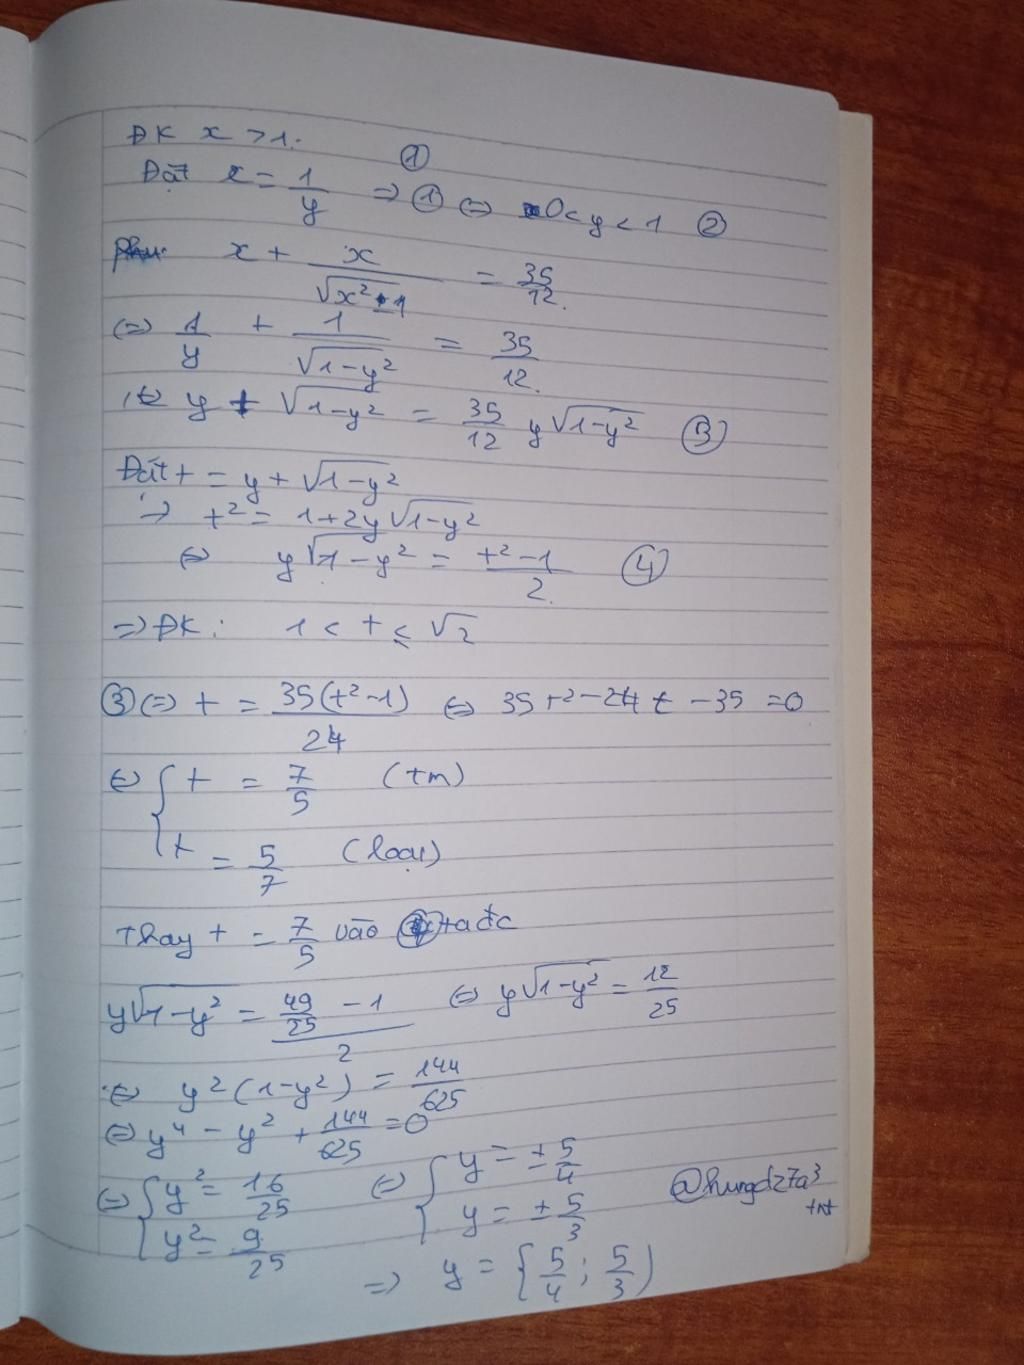 ĐK x > 1. ①
Đặt x = 1/y ⇒ ① ⇔ 0 < y < 1 ②
x + x/√(x² - 1) = 35/12.
⇔ 1/y + 1/√(1-y²) = 35/12.
⇔ y + √(1-y²) = 35/12 y√(1-y²) ③
Đặt t = y + √(1-y²)
⇒ t² = 1+2y√(1-y²)
⇔ y√(1-y²) = (t²-1)/2. ④
⇒ ĐK: 1 < t ≤ √2
③ ⇔ t = 35(t²-1)/24 ⇔ 35t² - 24t - 35 = 0
⇔ { t = 7/5 (tm)
t = 5/7 (loại)
Thay t = 7/5 vào ④ ta đc
y√(1-y²) = (49/25 - 1)/2 ⇔ y√(1-y²) = 12/25
⇔ y²(1-y²) = 144/625
⇔ y⁴ - y² + 144/625 = 0
⇔ { y² = 16/25 ⇔ { y = ±5/4
y² = 9/25 y = ±5/3
@hungdz7a3
tnt
⇒ y = {5/4; 5/3}